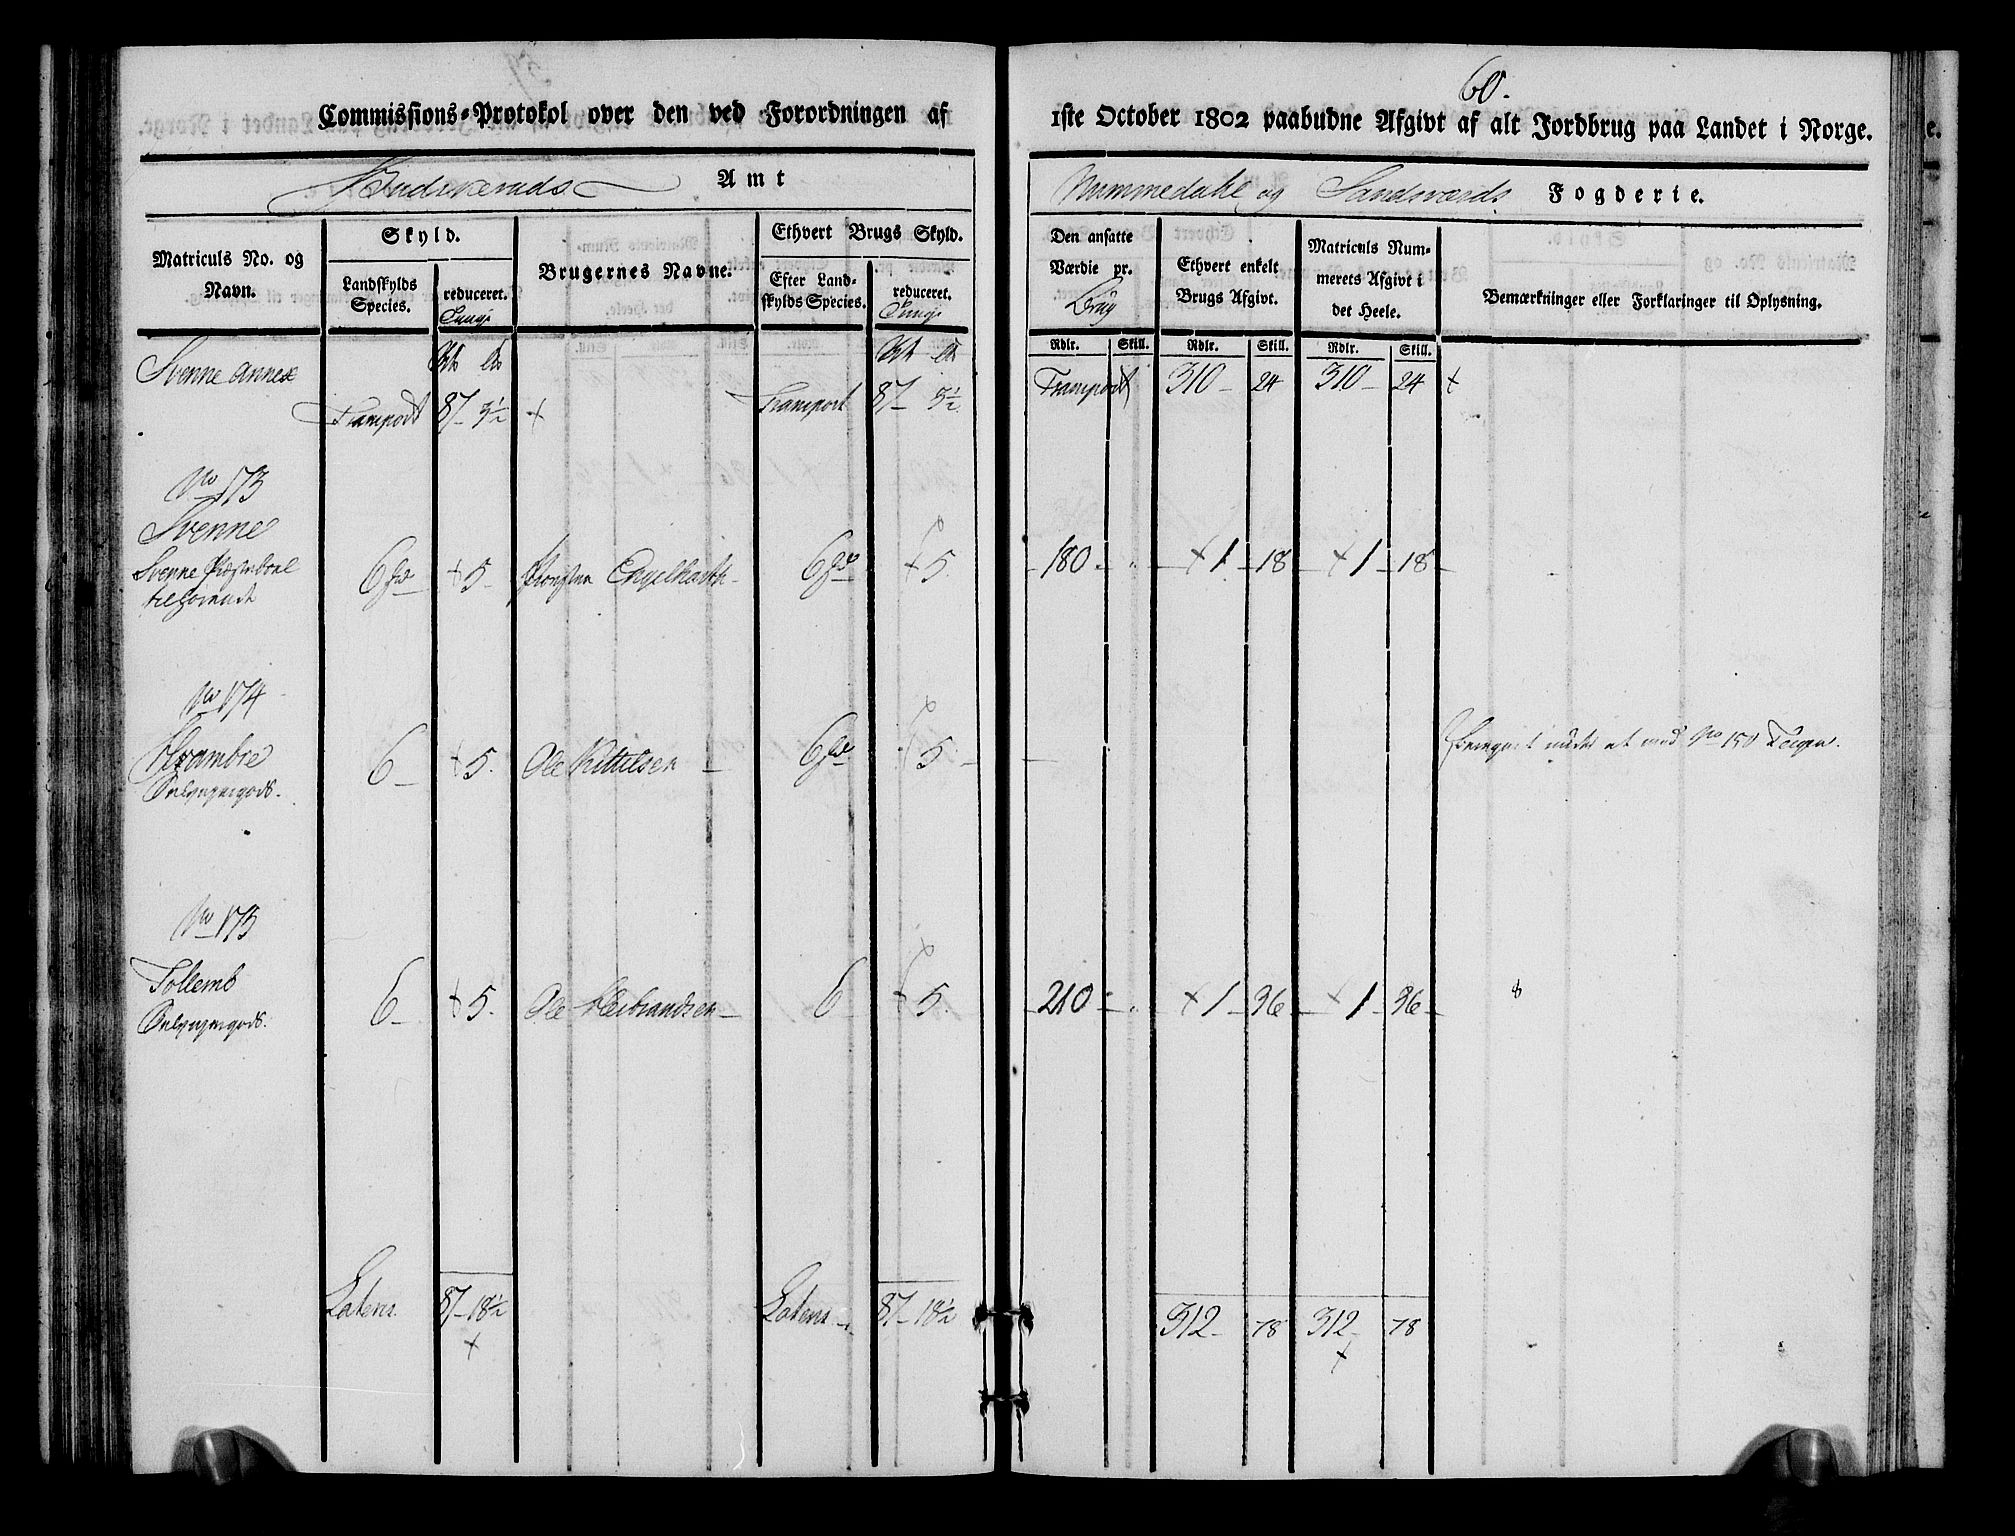 60.
Commissions-Protokol over den ved Forordningen af
1ste October 1802 paabudne Afgivt af alt Jordbrug paa Landet i Norge.
Buskeruds Amt
Nummedahl og Sandsværds Fogderie.
Matriculs No. og Navn.
Skyld.
Landskylds Species.
reduceret.
Tunge
Brugernes Navne.
Ethvert Brugs Skyld.
Efter Landskylds Species.
reduceret.
Tunge
Den ansatte Værdie pr.
Brug
Ethvert enkelt Brugs Afgivt.
Matriculs Nummerets Afgivt i det Heele.
Bemærkninger eller Forklaringer til Oplysning.
Rdlr. Skill. Rdlr. Skill. Rdlr. Skill.
Svenne Annex
Transport 87 - 3½ + Transport 87 - 3½ Transport 310 - 24 310 - 24 +
No 173
Svenne
Svenne Præsteboel
tilhørende
6 + 5. Engelharth - 6 + 5. 180 - + 1 - 18 - + 1 - 18 -
No 174
6 - + 5. Ole Kittelsen - 6 + 5 -
med No 150
No 175
Tollemb
6 - + 5. Ole Herbrandsen - 6 - + 5. 210 - + 1 - 36 - + 1 - 36 -
Latens 87 - 18½ Latens - 87 - 18½ 312 - 78 312 - 78
+ +